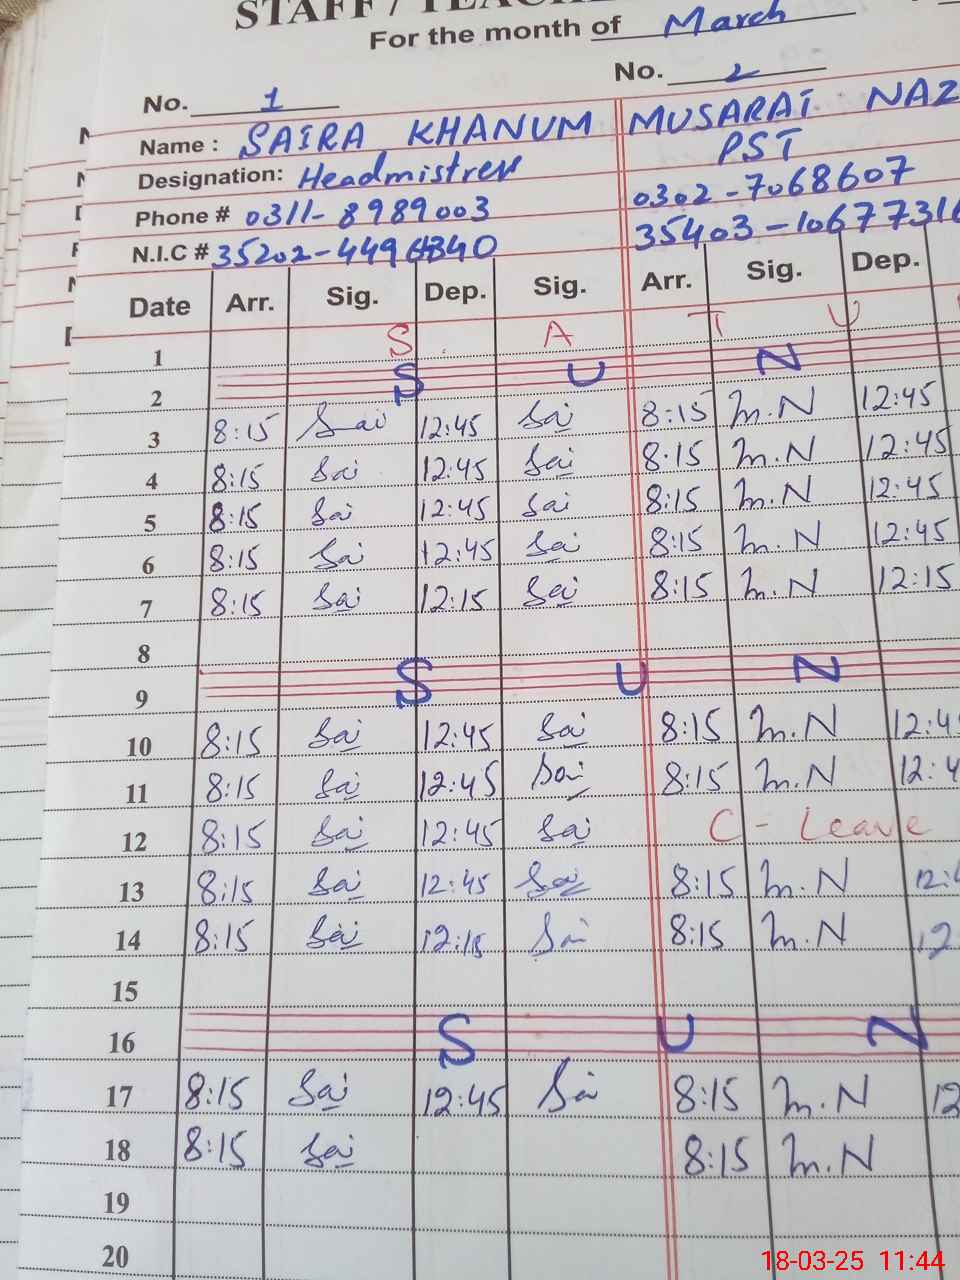 STAFF /
For the month of March
No. 1 No. 2
Name : SAIRA KHANUM MUSARAT
Designation: Headmistress PST
Phone # 0311-8989003 0302-7068607
N.I.C # 35202- 35403-10677316
Date Arr. Sig. Dep. Sig. Arr. Sig. Dep.
1 S A T U
2 S U N
3 8:15 Sai 12:45 Sai 8:15 M.N 12:45
4 8:15 Sai 12:45 Sai 8:15 M.N 12:45
5 8:15 Sai 12:45 Sai 8:15 M.N 12:45
6 8:15 Sai 12:45 Sai 8:15 M.N 12:45
7 8:15 Sai 12:15 Sai 8:15 M.N 12:15
8
9 S U N
10 8:15 Sai 12:45 Sai 8:15 M.N 12:45
11 8:15 Sai 12:45 Sai 8:15 M.N 12:4
12 8:15 Sai 12:45 Sai C- Leave
13 8:15 Sai 12:45 Sai 8:15 M.N 12:4
14 8:15 Sai 12:15 Sai 8:15 M.N 12
15
16 S U N
17 8:15 Sai 12:45 Sai 8:15 M.N 12
18 8:15 Sai 8:15 M.N
19
20
18-03-25 11:44